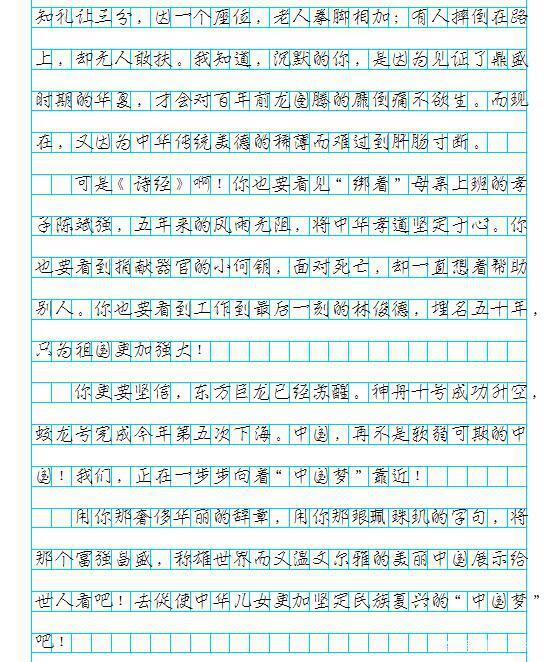 知礼让三分，因一个座位，老人拳脚相加；有人摔倒在路
上，却无人敢扶。我知道，沉默的你，是因为见证了鼎盛
时期的华夏，才会对百年前龙图腾的靡倒痛不欲生。而现
在，又因为中华传统美德的稀薄而难过到肝肠寸断。
可是《诗经》啊！你也要看见“绑着”母亲上班的孝
子陈斌强，五年来的风雨无阻，将中华孝道坚定于心。你
也要看到捐献器官的小何钥，面对死亡，却一直想着帮助
别人。你也要看到工作到最后一刻的林俊德，埋名五十年，
只为祖国更加强大！
你更要坚信，东方巨龙已经苏醒。神舟十号成功升空，
蛟龙号完成今年第五次下海。中国，再不是软弱可欺的中
国！我们，正在一步步向着“中国梦”靠近！
用你那奢侈华丽的辞章，用你那琅珮珠玑的字句，将
那个富强昌盛，称雄世界而又温文尔雅的美丽中国展示给
世人看吧！去促使中华儿女更加坚定民族复兴的“中国梦”
吧！